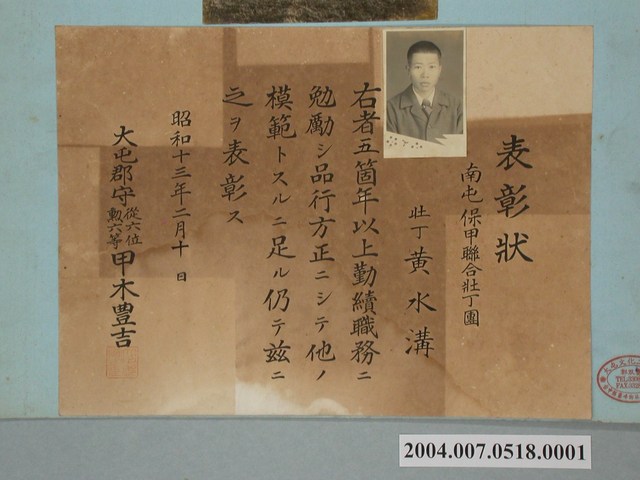 表彰狀
南屯保甲聯合壯丁團
壯丁 黃水溝
右者五箇年以上勤續職務ニ
勉勵シ品行方正ニシテ他ノ
模範トスルニ足ル仍テ茲ニ
之ヲ表彰ス
昭和十三年二月十日
大屯郡守 從六位 勲六等 甲木豊吉
2004.007.0518.0001